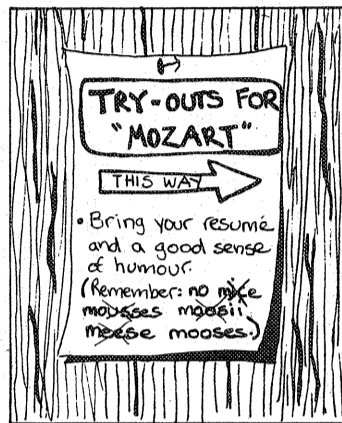 TRY-OUTS FOR
"MOZART"
THIS WAY
• Bring your resumé
and a good sense
of humour.
(Remember: no mice
mousses moosii
meese mooses.)